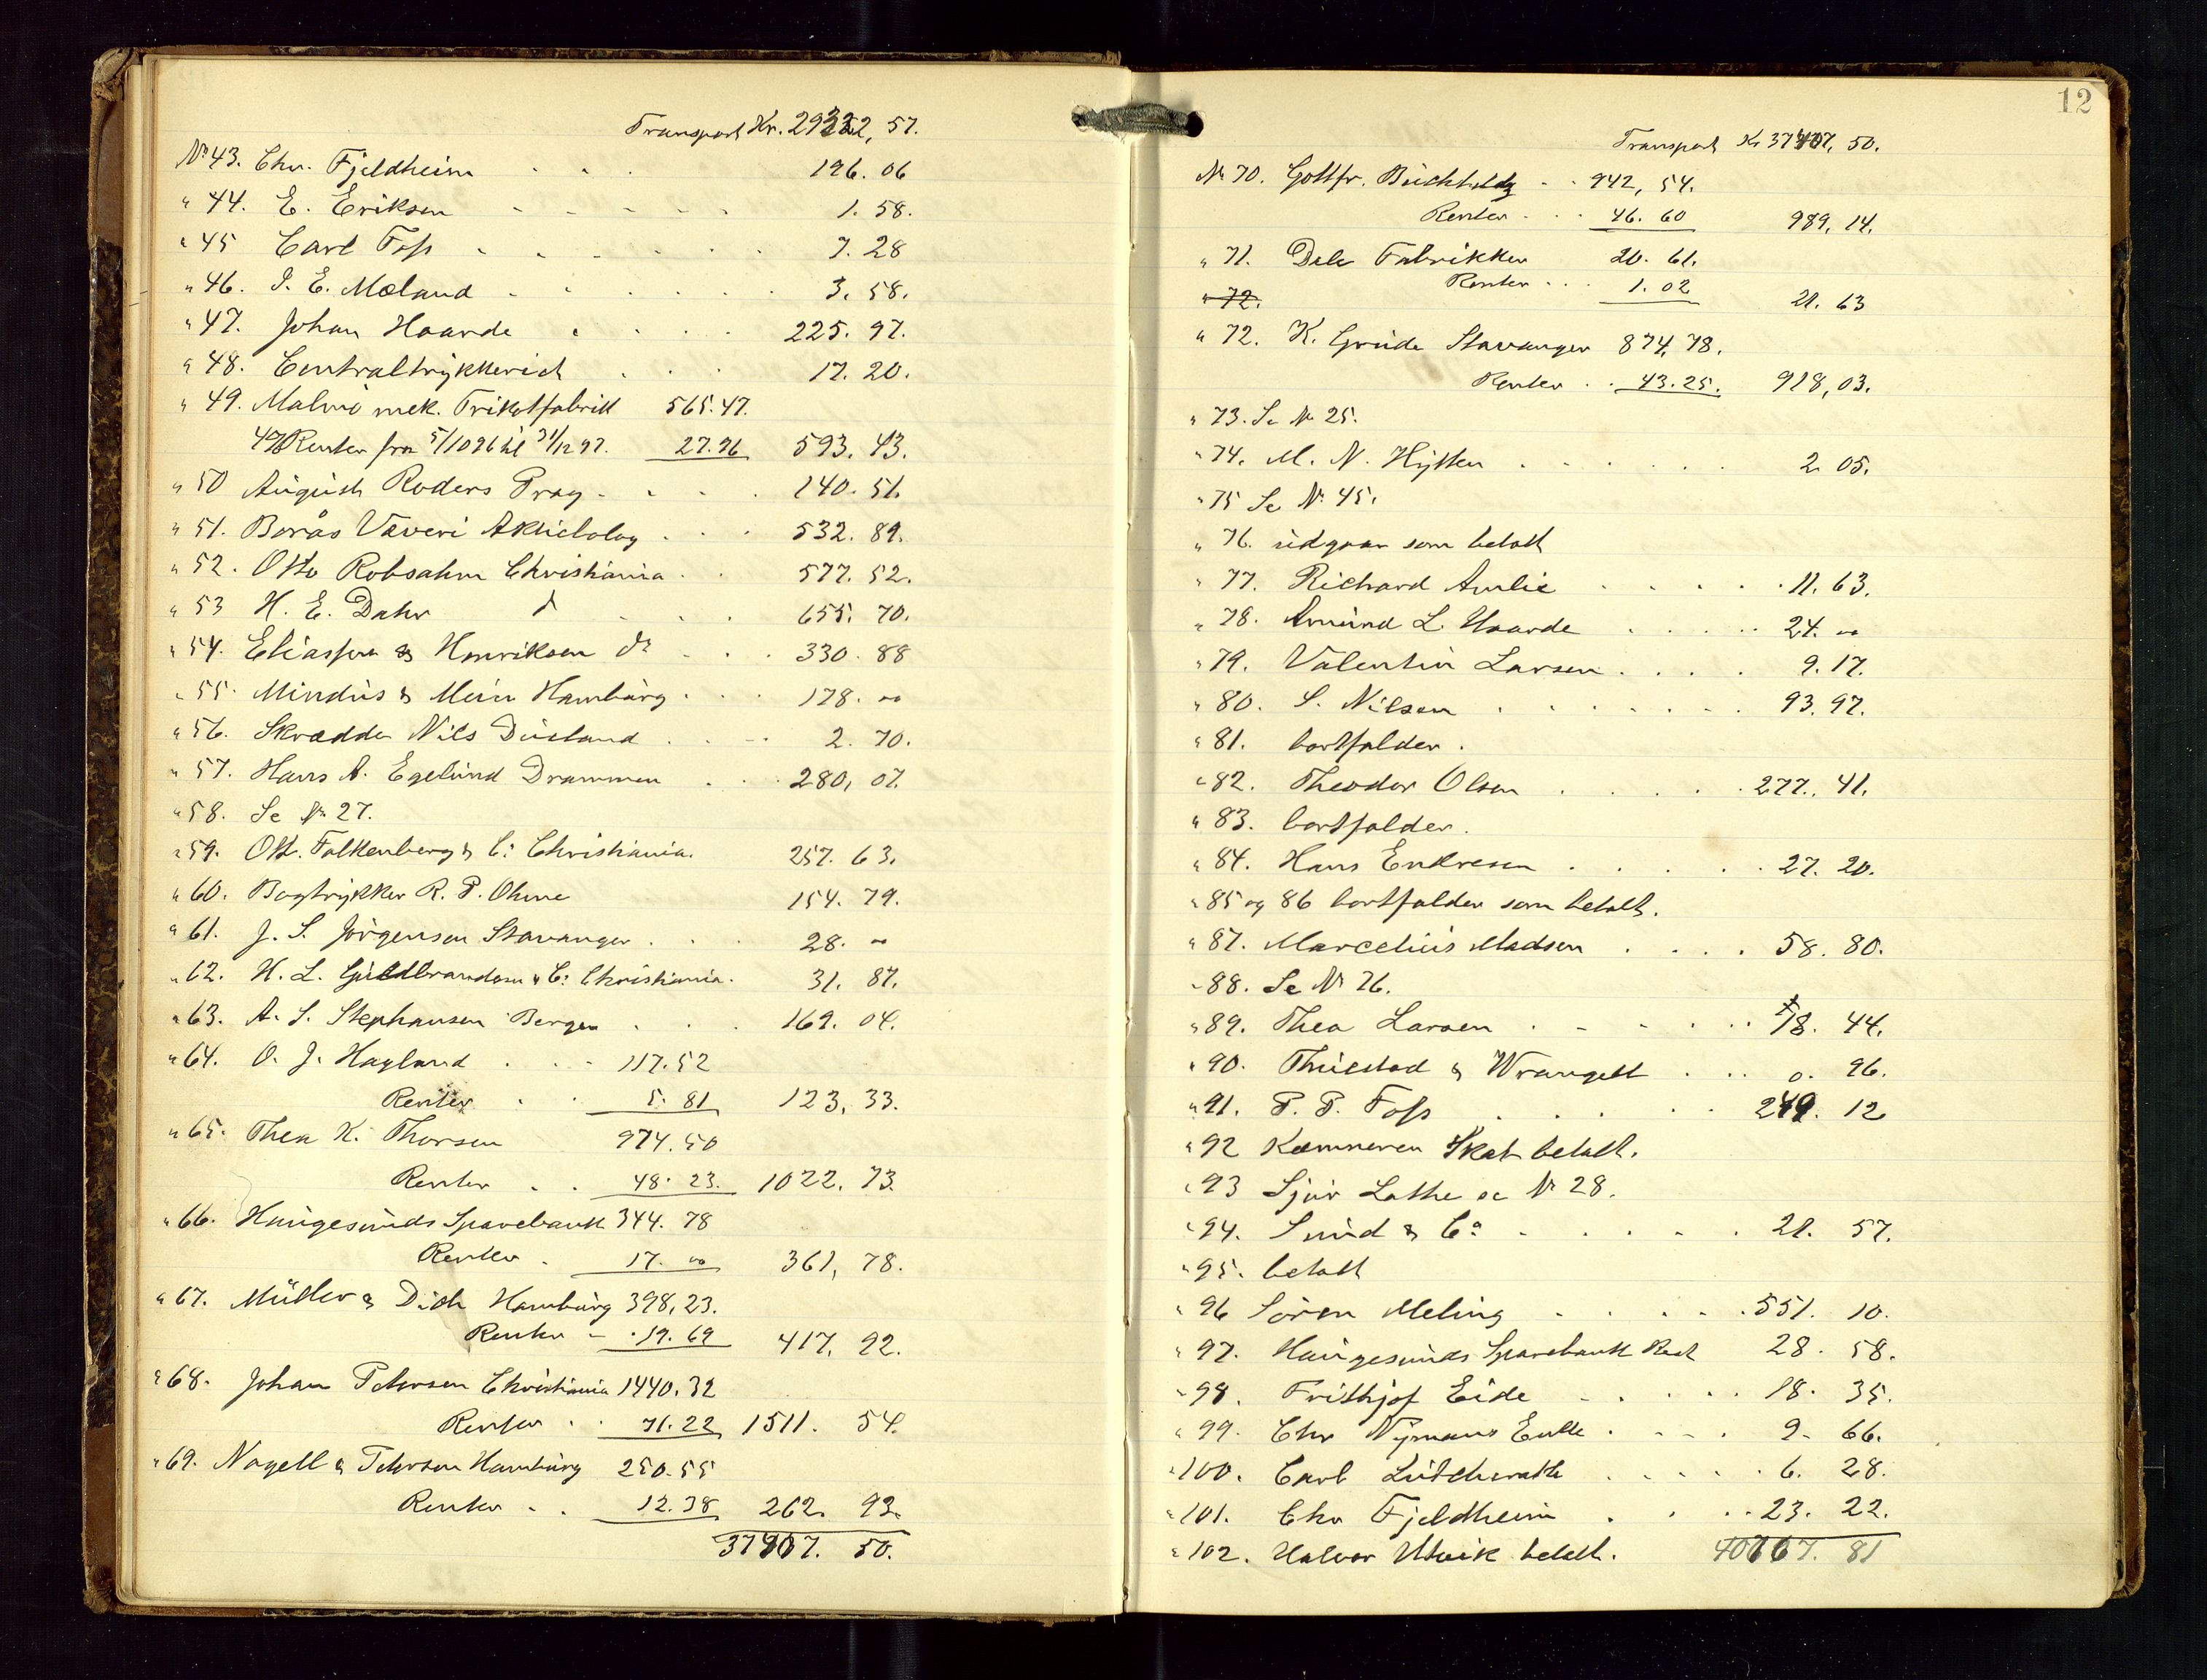 Transport Kr. 29322, 57.
No 43. Chr. Fjeldheim . . . 196. 06
" 44. E. Eriksen - - - - - 1. 58.
" 45 Carl Foss . . . . . . 7. 28
" 46. I. E. Moland . . . . . . 3. 58.
" 47. Johan Haarde . . . . 225. 97.
" 48. Centraltrykkeriet . . . 17. 20.
" 49. Malmö mek. Trikotfabrik 565.47.
4% Renter fra 5/10 96 til 31/12 97. 27.96 593. 43.
" 50 August Roders Prag - . . . 140. 51.
" 51. Borås Väveri Aktiebolag . . . 532. 89.
" 52. Otto Robsahm Christiania . . 577. 52.
" 53 H. E. Dahr do . . . 655. 70.
" 54. Eliassen & Henriksen do . . . 330. 88
" 55. Mindus & Mein Hamburg . . . 178. "
" 56. Skrædder Nils Duesland . . - 2. 70.
" 57. Hans A. Egelund Drammen . . 280, 07.
" 58. Se No 27.
" 59. Ott. Falkenberg & Co Christiania. 257. 63.
" 60. Bogtrykker R. P. Ohme 154. 79.
" 61. J. S. Jörgensen Stavanger . . . 28. "
" 62. H. L. Guldbrandsen & Co Christiania. 31. 87.
" 63. A. S. Stephansen Bergen . . . 169. 04.
" 64. O. J. Hagland . . - 117.52
Renter . . 5. 81 123, 33.
" 65. Thea K. Thorsen 974.50
Renter . . 48. 23. 1022. 73.
" 66. Haugesunds Sparebank 344. 78
Renter . 17. " 361, 78.
" 67. Müller & Dich Hamburg 398, 23.
Renter - . 19. 69 417, 92.
" 68. Johan Petersen Christiania 1440. 32
Renter . . 71. 22 1511. 54.
" 69. Nagell & Petersen Hamburg 250.55
Renter . . 12.38 262. 93.
37907. 50.
12
Transport Kr 37907, 50.
No 70. Gottfr. Buchholdz . . 942, 54.
Renter . . . 46. 60 989, 14.
" 71. Dale Fabrikker 20. 61.
Renter . . . 1. 02 21. 63
" 72.
" 72. K. Grude Stavanger 874, 78.
Renter . . 43. 25. 918, 03.
" 73. Se No 25.
" 74. M. N. Hytten . . . . . . 2 05.
" 75 Se No 45.
" 76. udgaar som betalt
" 77. Richard Amlie . . . . . 11. 63.
" 78. Amund L. Haarde . . . . . 24. "
" 79. Valentin Larsen . . . . 9. 17.
" 80. S. Nilsen . . . . . . . 93. 97.
" 81. bortfalder .
" 82. Theodor Olsen . . . . . 277. 41.
" 83. bortfalder.
" 84. Hans Endresen . . . . . 27. 20.
" 85 og 86 bortfalder som betalt.
" 87. Marcelius Madsen . . . . 58. 80.
" 88. Se No 26.
" 89. Thea Larsen . - . - . . 18. 44.
" 90. Thuestad & Wrangell . . . 0. 96.
" 91. P. P. Foss . . . . . . 249. 12
" 92 Kæmneren Skat betalt.
" 93 Sjur Lothe se No 28.
" 94. Sund & Co . . . . - . 21. 57.
" 95. betalt
" 96 Sören Meling . . . . . 551. 10.
" 97. Haugesunds Sparebank Rest 28. 58.
" 98. Frithjof Eide - . . . . 18. 35.
" 99. Chr Nymans Enke . - - . 9- 66.
" 100. Carl Lütcherath . . . . . 6. 28.
" 101. Chr Fjeldheim . . . . 23. 22.
" 102. Halvor Utvik betalt. 40767. 81